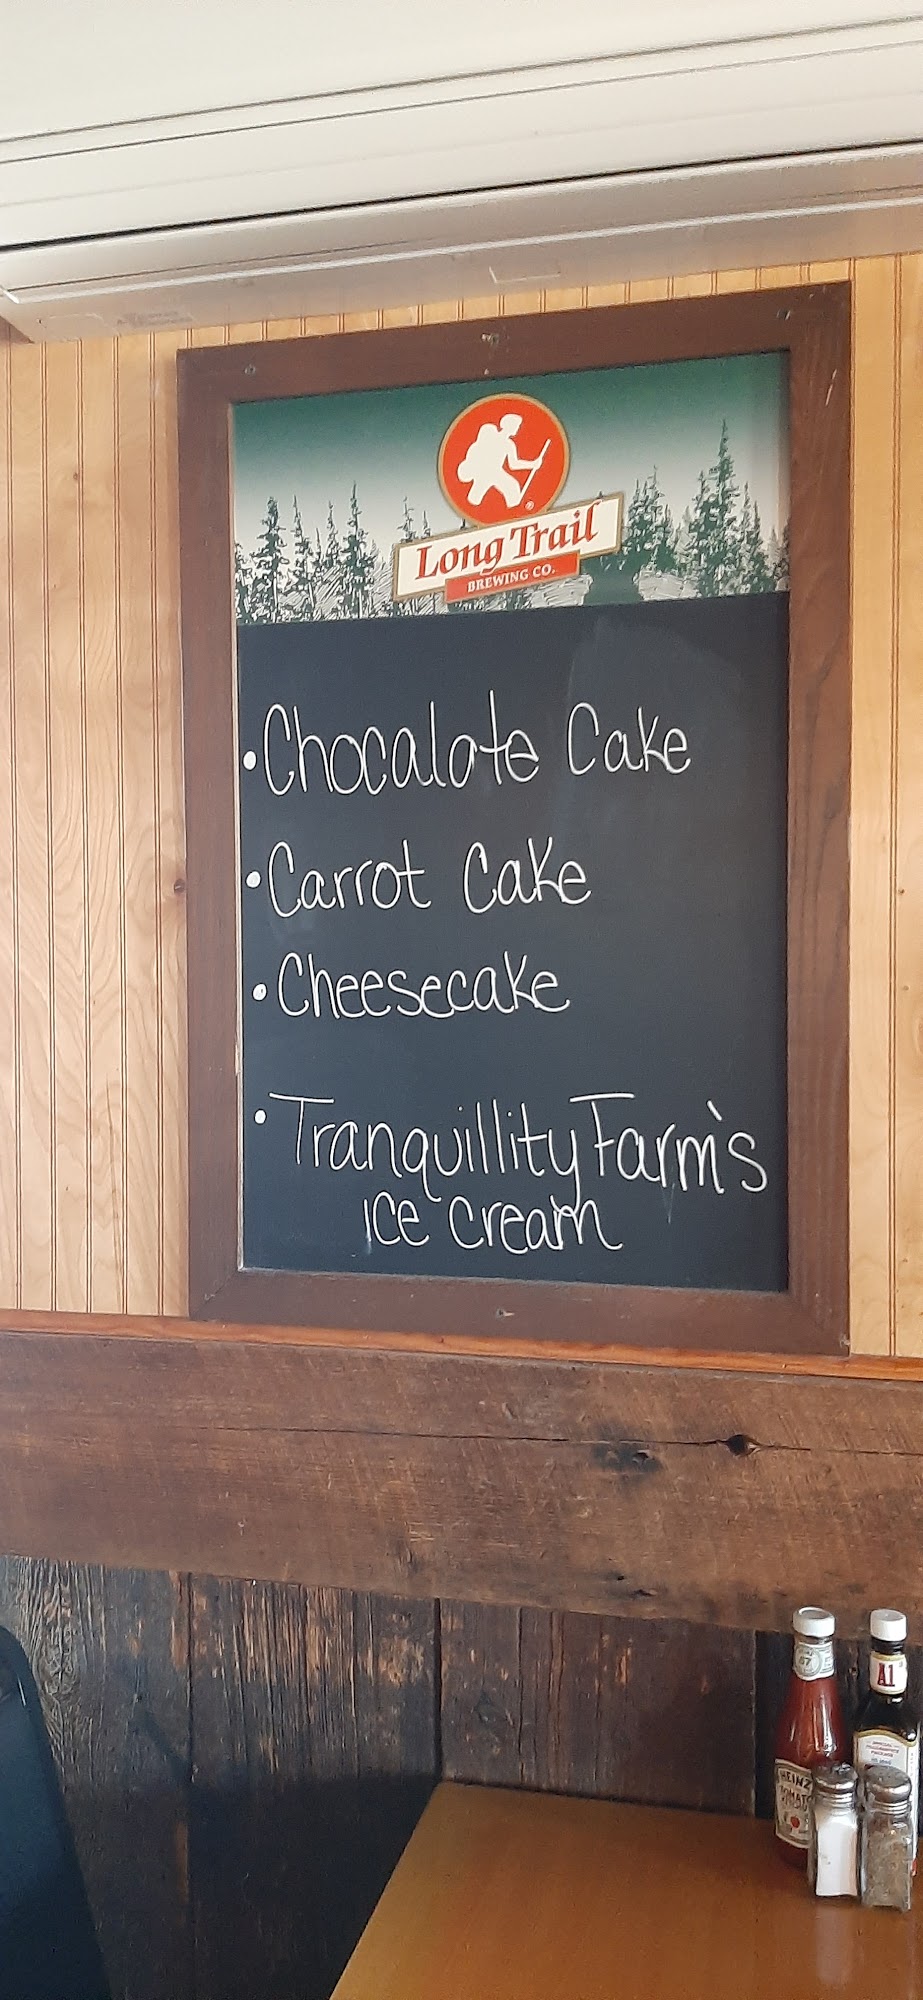 Long Trail
BREWING CO.
• Chocalate Cake
• Carrot Cake
• Cheesecake
• Tranquillity Farm's
ice cream
57
A1
HEINZ
TOMATO